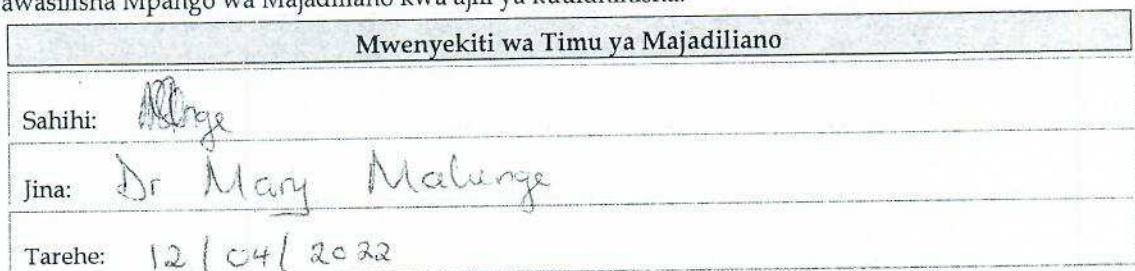 awasilisha Mpango wa Majadiliano kwa ajili ya
Mwenyekiti wa Timu ya Majadiliano
Sahihi:
Jina: Dr Mary Malunge
Tarehe: 12/04/2022